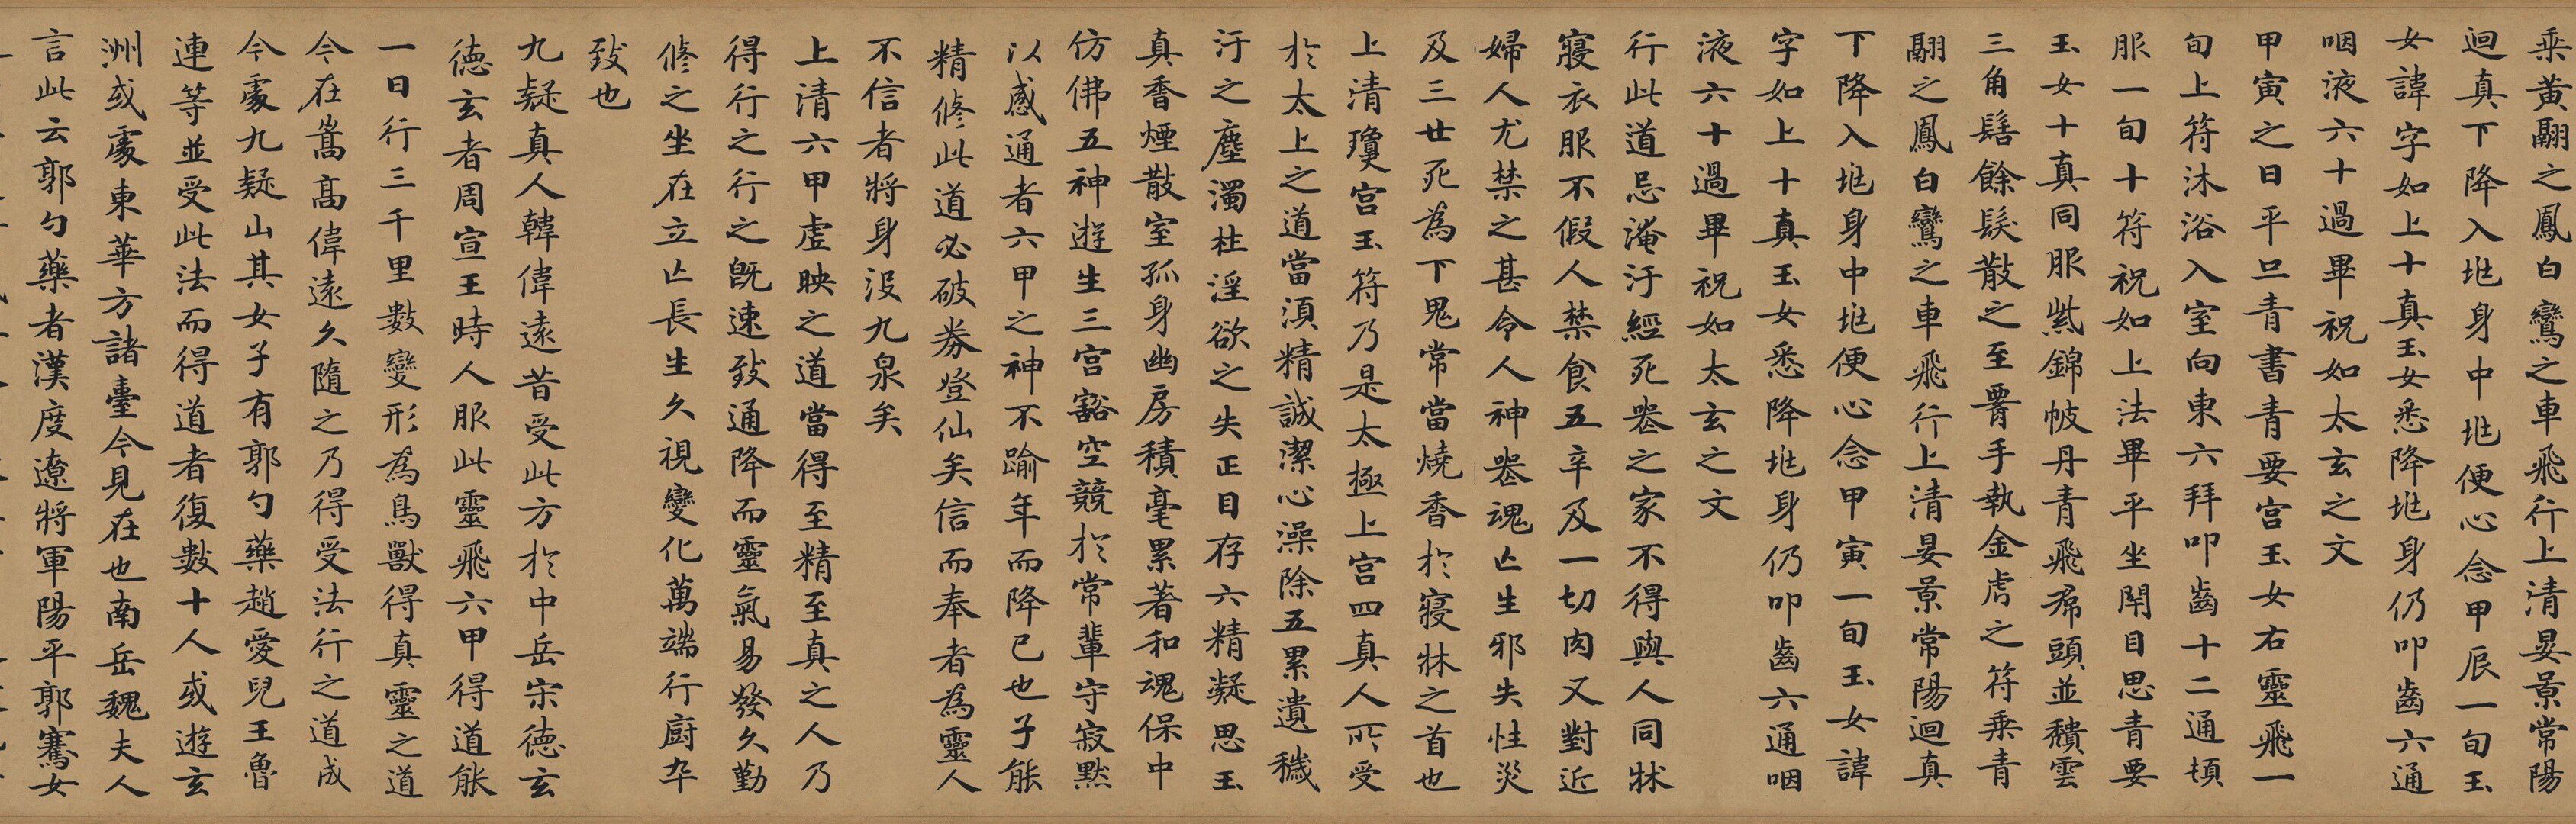 乘黃翮之鳳白鸞之車飛行上清晏景常陽
迴真下降入𡉏身中𡉏便心念甲辰一旬玉
女諱字如上十真玉女悉降𡉏身仍叩齒六通
咽液六十過畢祝如太玄之文
甲寅之日平旦青書青要宮玉女右靈飛一
旬上符沐浴入室向東六拜叩齒十二通頓
服一旬十符祝如上法畢平坐閇目思青要
玉女十真同服紫錦帔丹青飛帬頭並穨雲
三角髻餘髮散之至𦝫手執金虎之符乘青
翮之鳳白鸞之車飛行上清晏景常陽迴真
下降入𡉏身中𡉏便心念甲寅一旬玉女諱
字如上十真玉女悉降𡉏身仍叩齒六通咽
液六十過畢祝如太玄之文
行此道忌淹汙經死䘮之家不得與人同牀
寢衣服不假人禁食五辛及一切肉又對近
婦人尤禁之甚令人神䘮魂亡生邪失性灾
及三世死為下鬼常當燒香於寢牀之首也
上清瓊宮玉符乃是太極上宮四真人所受
於太上之道當湏精誠潔心澡除五累遺穢
汙之塵濁杜淫欲之失正目存六精凝思玉
真香煙散室孤身幽房積毫累著和魂保中
仿佛五神遊生三宮豁空競於常輩守寂默
以感通者六甲之神不踰年而降已也子能
精修此道必破券登仙矣信而奉者為靈人
不信者將身沒九泉矣
上清六甲虛映之道當得至精至真之人乃
得行之行之既速致通降而靈氣易發久勤
修之坐在立亡長生久視變化萬端行廚卒
致也
九疑真人韓偉遠昔受此方於中岳宋德玄
德玄者周宣王時人服此靈飛六甲得道能
一日行三千里數變形為鳥獸得真靈之道
今在嵩高偉遠久隨之乃得受法行之道成
今處九疑山其女子有郭勺藥趙愛兒王魯
連等並受此法而得道者復數十人或遊玄
洲或處東華方諸臺今見在也南岳魏夫人
言此云郭勺藥者漢度遼將軍陽平郭騫女